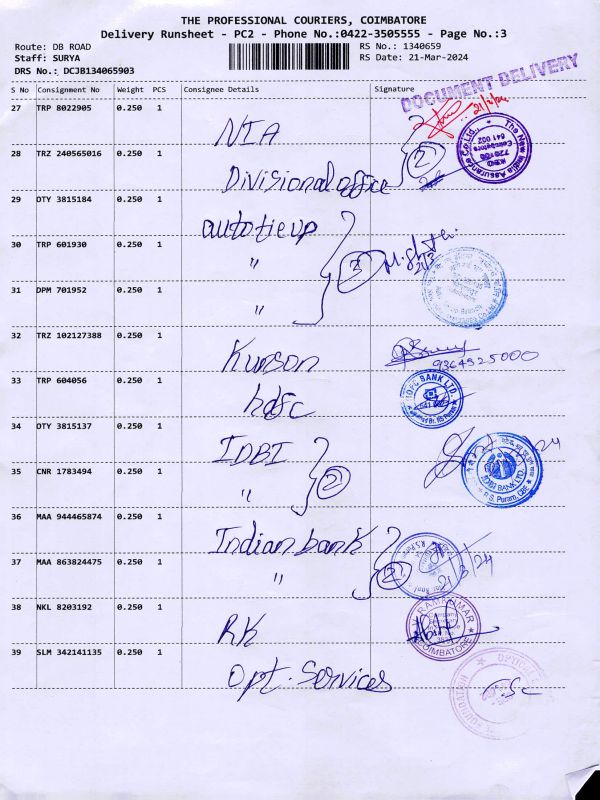 THE PROFESSIONAL COURIERS, COIMBATORE
Delivery Runsheet - PC2 - Phone No.:0422-3505555 - Page No.:3
Route: DB ROAD
RS No.: 1340659
Staff: SURYA
RS Date: 21-Mar-2024
DRS No.: DCJB134065903
DOCUMENT DELIVERY
S No Consignment No Weight PCS Consignee Details Signature
27 TRP 8022905 0.250 1 NIA
28 TRZ 240565016 0.250 1 Divisional office
2
The New India Assurance Co. Ltd.
720106
Coimbatore
641 002
29 OTY 3815184 0.250 1 auto tie up
30 TRP 601930 0.250 1 "
3
31 DPM 701952 0.250 1 "
32 TRZ 102127388 0.250 1 Kurson
9364525000
33 TRP 604056 0.250 1 hdfc
HDFC BANK LTD.
34 OTY 3815137 0.250 1 IDBI
35 CNR 1783494 0.250 1 "
2
IDBI BANK LTD.
R.S. Puram, CBE
36 MAA 944465874 0.250 1 Indian bank
37 MAA 863824475 0.250 1 "
2
38 NKL 8203192 0.250 1 RK
COIMBATORE
39 SLM 342141135 0.250 1 Opt. Services